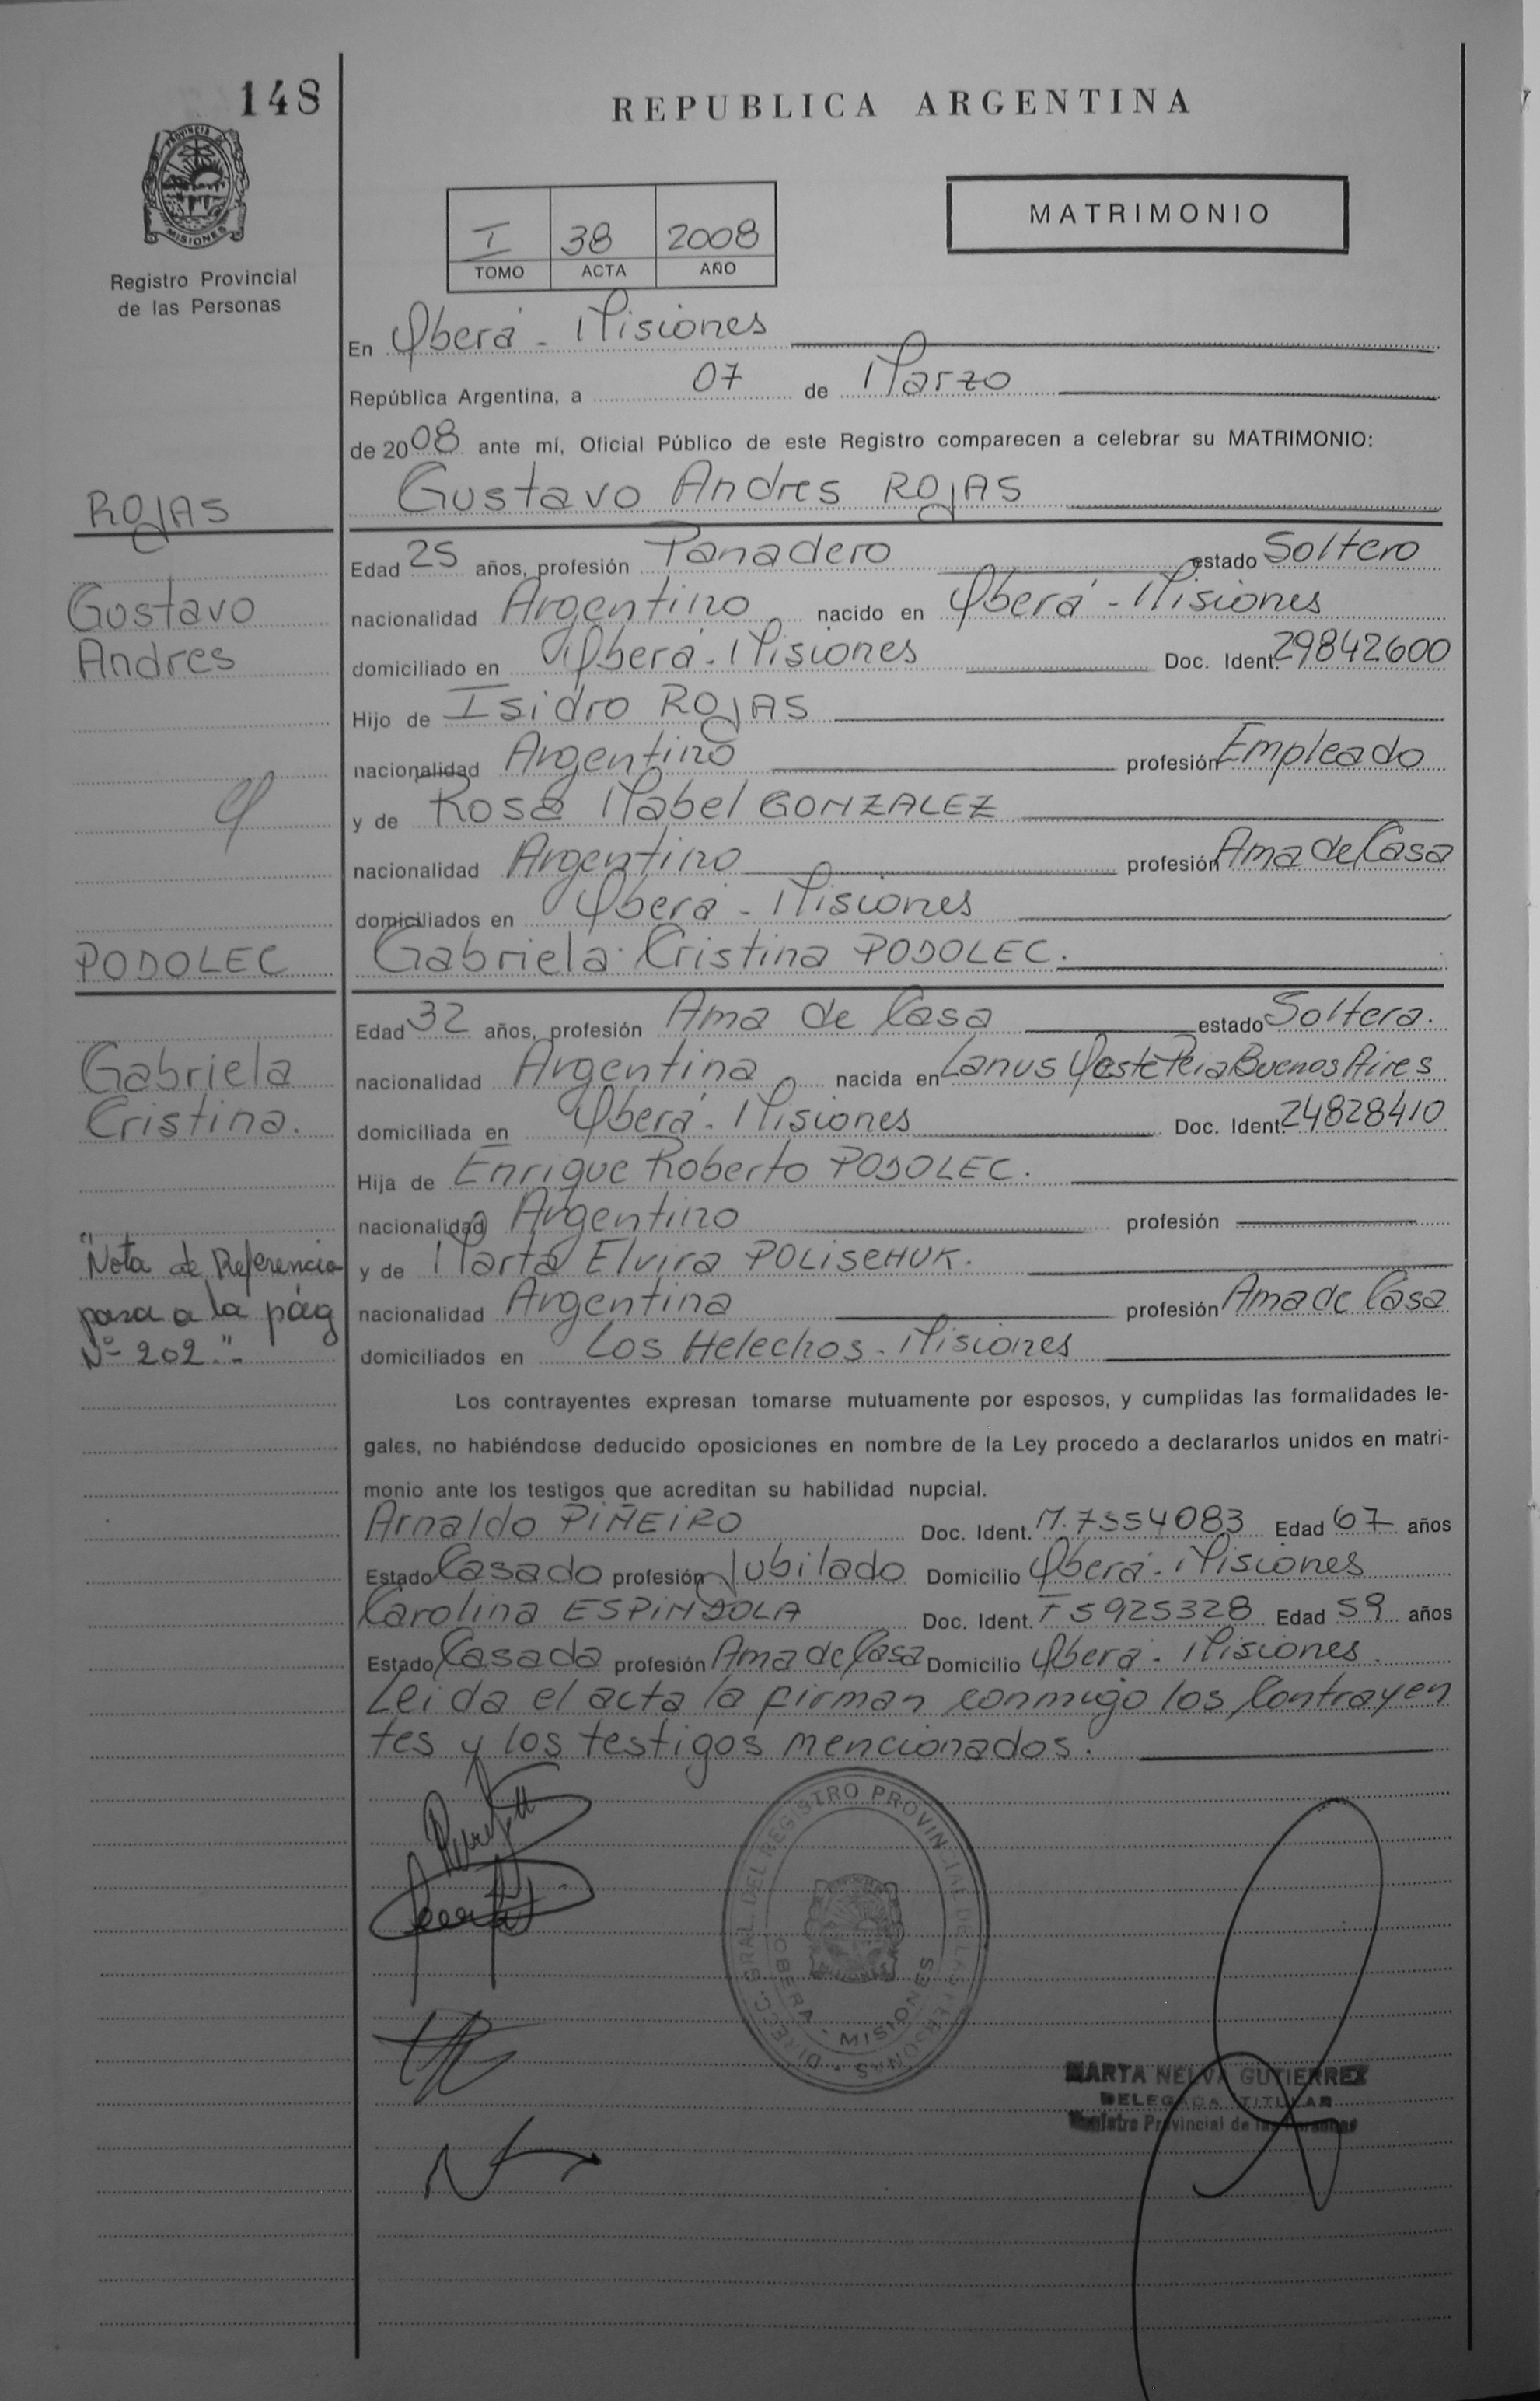 148
REPUBLICA ARGENTINA
PROVINCIA DE
MISIONES
Registro Provincial
de las Personas
I 38 2008
TOMO ACTA AÑO
MATRIMONIO
En Oberá - Misiones
República Argentina, a 07 de Marzo
de 2008 ante mí, Oficial Público de este Registro comparecen a celebrar su MATRIMONIO:
ROJAS
Gustavo Andres ROJAS
Edad 25 años, profesión Panadero estado Soltero
Gustavo
nacionalidad Argentino nacido en Oberá - Misiones
Andres
domiciliado en Oberá - Misiones Doc. Ident. 29842600
Hijo de Isidro ROJAS
nacionalidad Argentino profesión Empleado
y de Rosa Mabel GONZALEZ
nacionalidad Argentino profesión Ama de Casa
domiciliados en Oberá - Misiones
PODOLEC
Gabriela Cristina PODOLEC.
Edad 32 años, profesión Ama de Casa estado Soltera.
Gabriela
nacionalidad Argentina nacida en Lanus Oeste Pcia Buenos Aires
Cristina.
domiciliada en Oberá - Misiones Doc. Ident. 24828410
Hija de Enrique Roberto PODOLEC.
nacionalidad Argentino profesión
"Nota de Referencia
y de Marta Elvira POLISCHUK.
pasa a la pág
nacionalidad Argentina profesión Ama de Casa
Nº 202."
domiciliados en Los Helechos - Misiones
Los contrayentes expresan tomarse mutuamente por esposos, y cumplidas las formalidades le-
gales, no habiéndose deducido oposiciones en nombre de la Ley procedo a declararlos unidos en matri-
monio ante los testigos que acreditan su habilidad nupcial.
Arnaldo PIÑEIRO Doc. Ident. M. 7554083 Edad 67 años
Estado Casado profesión Jubilado Domicilio Oberá - Misiones
Carolina ESPINDOLA Doc. Ident. F 5925328 Edad 59 años
Estado Casada profesión Ama de Casa Domicilio Oberá - Misiones.
Leida el acta la firman conmigo los Contrayen
tes y los testigos mencionados.
DIREC. GRAL. DEL REGISTRO PROVINCIAL DE LAS PERSONAS
OBERA - MISIONES
MARTA NELVA GUTIERREZ
DELEGADA TITULAR
Registro Provincial de las Personas